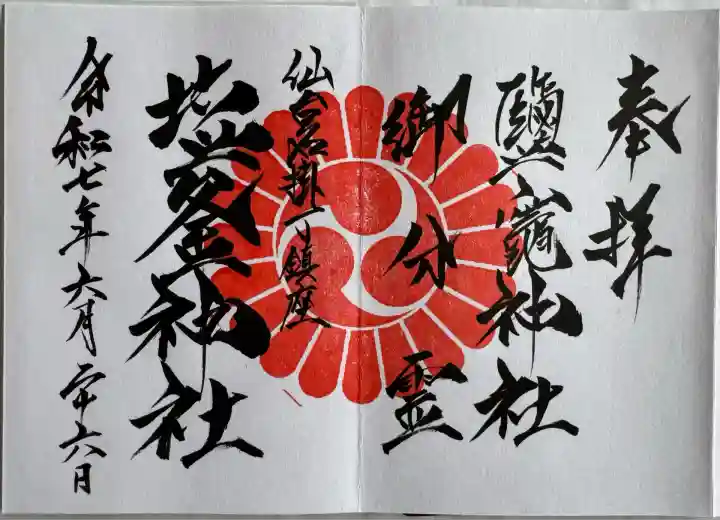 奉拝
鹽竈神社
御分霊
仙台名掛丁鎮座
塩釜神社
令和七年六月二十六日